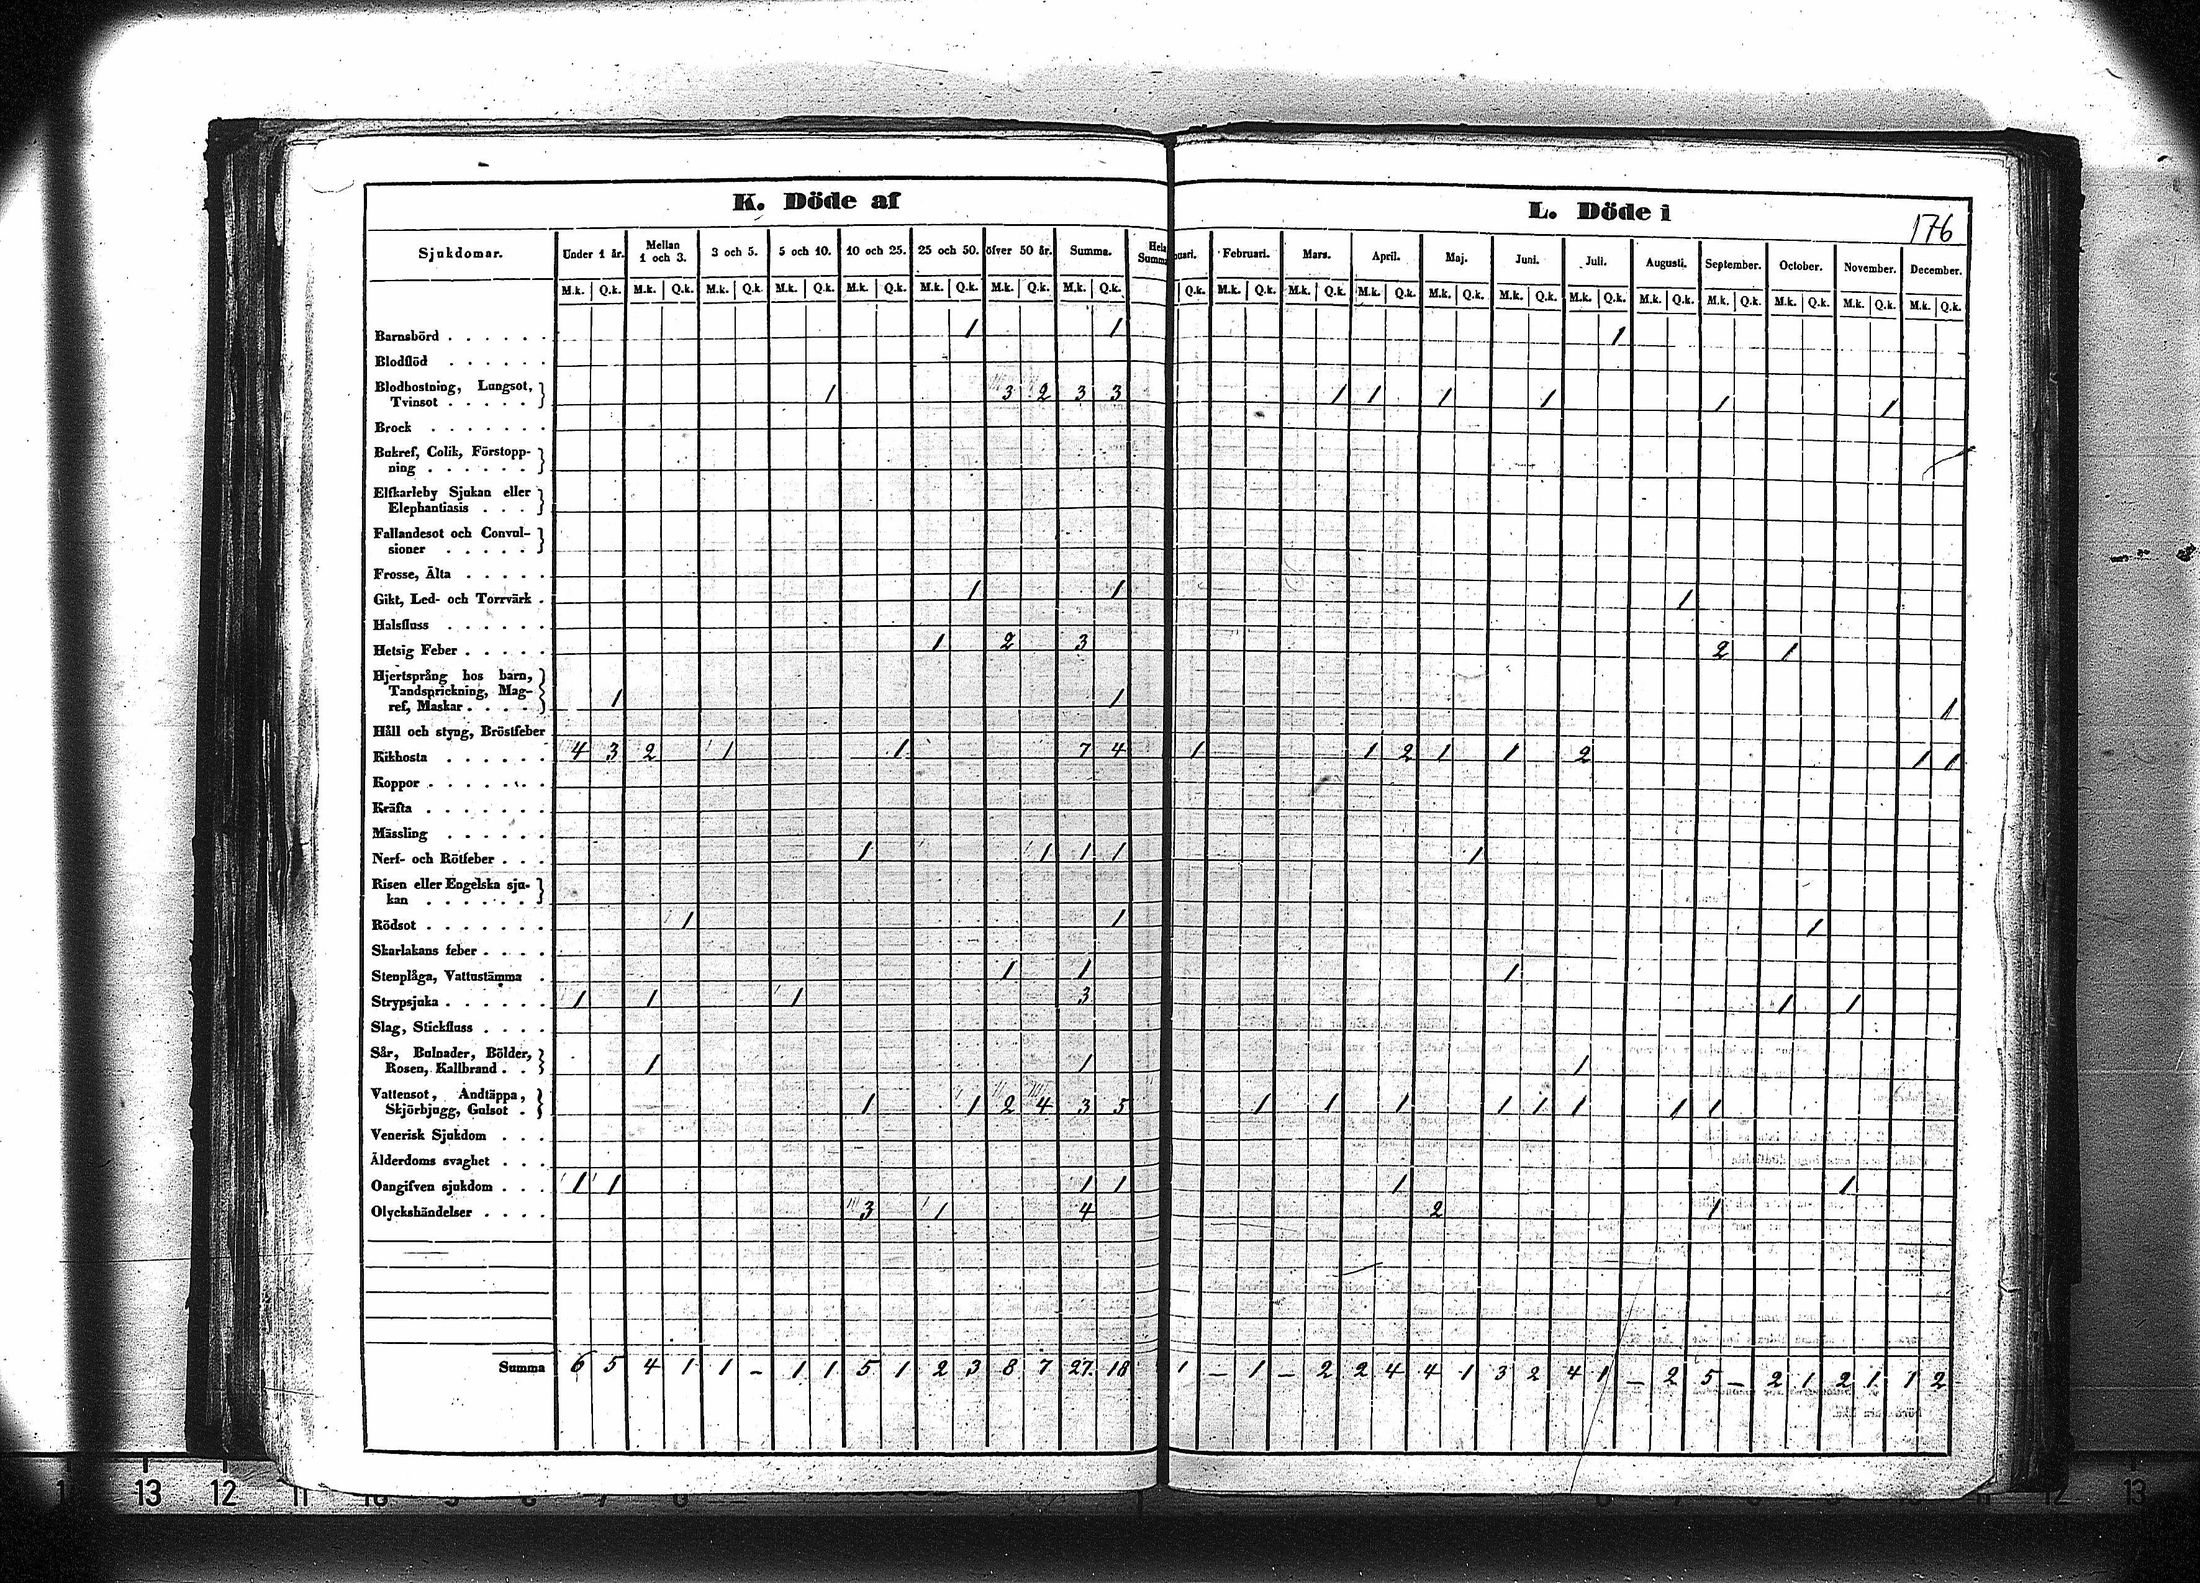 K. Döde af
L. Döde i
176
Sjukdomar. Under 1 år. Mellan 1 och 3. 3 och 5. 5 och 10. 10 och 25. 25 och 50. öfver 50 år. Summa. Hela Summa
uari. Februari. Mars. April. Maj. Juni. Juli. Augusti. September. October. November. December.
M.k. Q.k. M.k. Q.k. M.k. Q.k. M.k. Q.k. M.k. Q.k. M.k. Q.k. M.k. Q.k. M.k. Q.k.
Q.k. M.k. Q.k. M.k. Q.k. M.k. Q.k. M.k. Q.k. M.k. Q.k. M.k. Q.k. M.k. Q.k. M.k. Q.k. M.k. Q.k. M.k. Q.k. M.k. Q.k.
Barnsbörd 1 1 1
Blodflöd
Blodhostning, Lungsot,
Tvinsot 1 3 2 3 3 1 1 1 1 1 1
Brock
Bukref, Colik, Förstopp-
ning
Elfkarleby Sjukan eller
Elephantiasis
Fallandesot och Convul-
sioner
Frosse, Älta
Gikt, Led- och Torrvärk 1 1 1
Halsfluss
Hetsig Feber 1 2 3 2 1
Hjertsprång hos barn,
Tandsprickning, Mag-
ref, Maskar 1 1 1
Håll och styng, Bröstfeber
Kikhosta 4 3 2 1 1 7 4 1 1 2 1 1 2 1 1
Koppor
Kräfta
Mässling
Nerf- och Rötfeber 1 1 1 1 1
Risen eller Engelska sju-
kan
Rödsot 1 1 1
Skarlakans feber
Stenplåga, Vattustämma 1 1 1
Strypsjuka 1 1 1 3 1 1
Slag, Stickfluss
Sår, Bulnader, Bölder,
Rosen, Kallbrand 1 1 1
Vattensot, Andtäppa,
Skjörbjugg, Gulsot 1 1 2 4 3 5 1 1 1 1 1 1 1 1
Venerisk Sjukdom
Ålderdoms svaghet
Oangifven sjukdom 1 1 1 1 1 1
Olyckshändelser 3 1 4 2 1
Summa 6 5 4 1 1 - 1 1 5 1 2 3 8 7 27. 18 1 - 1 - 2 2 4 4 1 3 2 4 1 - 2 5 - 2 1 2 1. 1 2
13 12 11
12 13